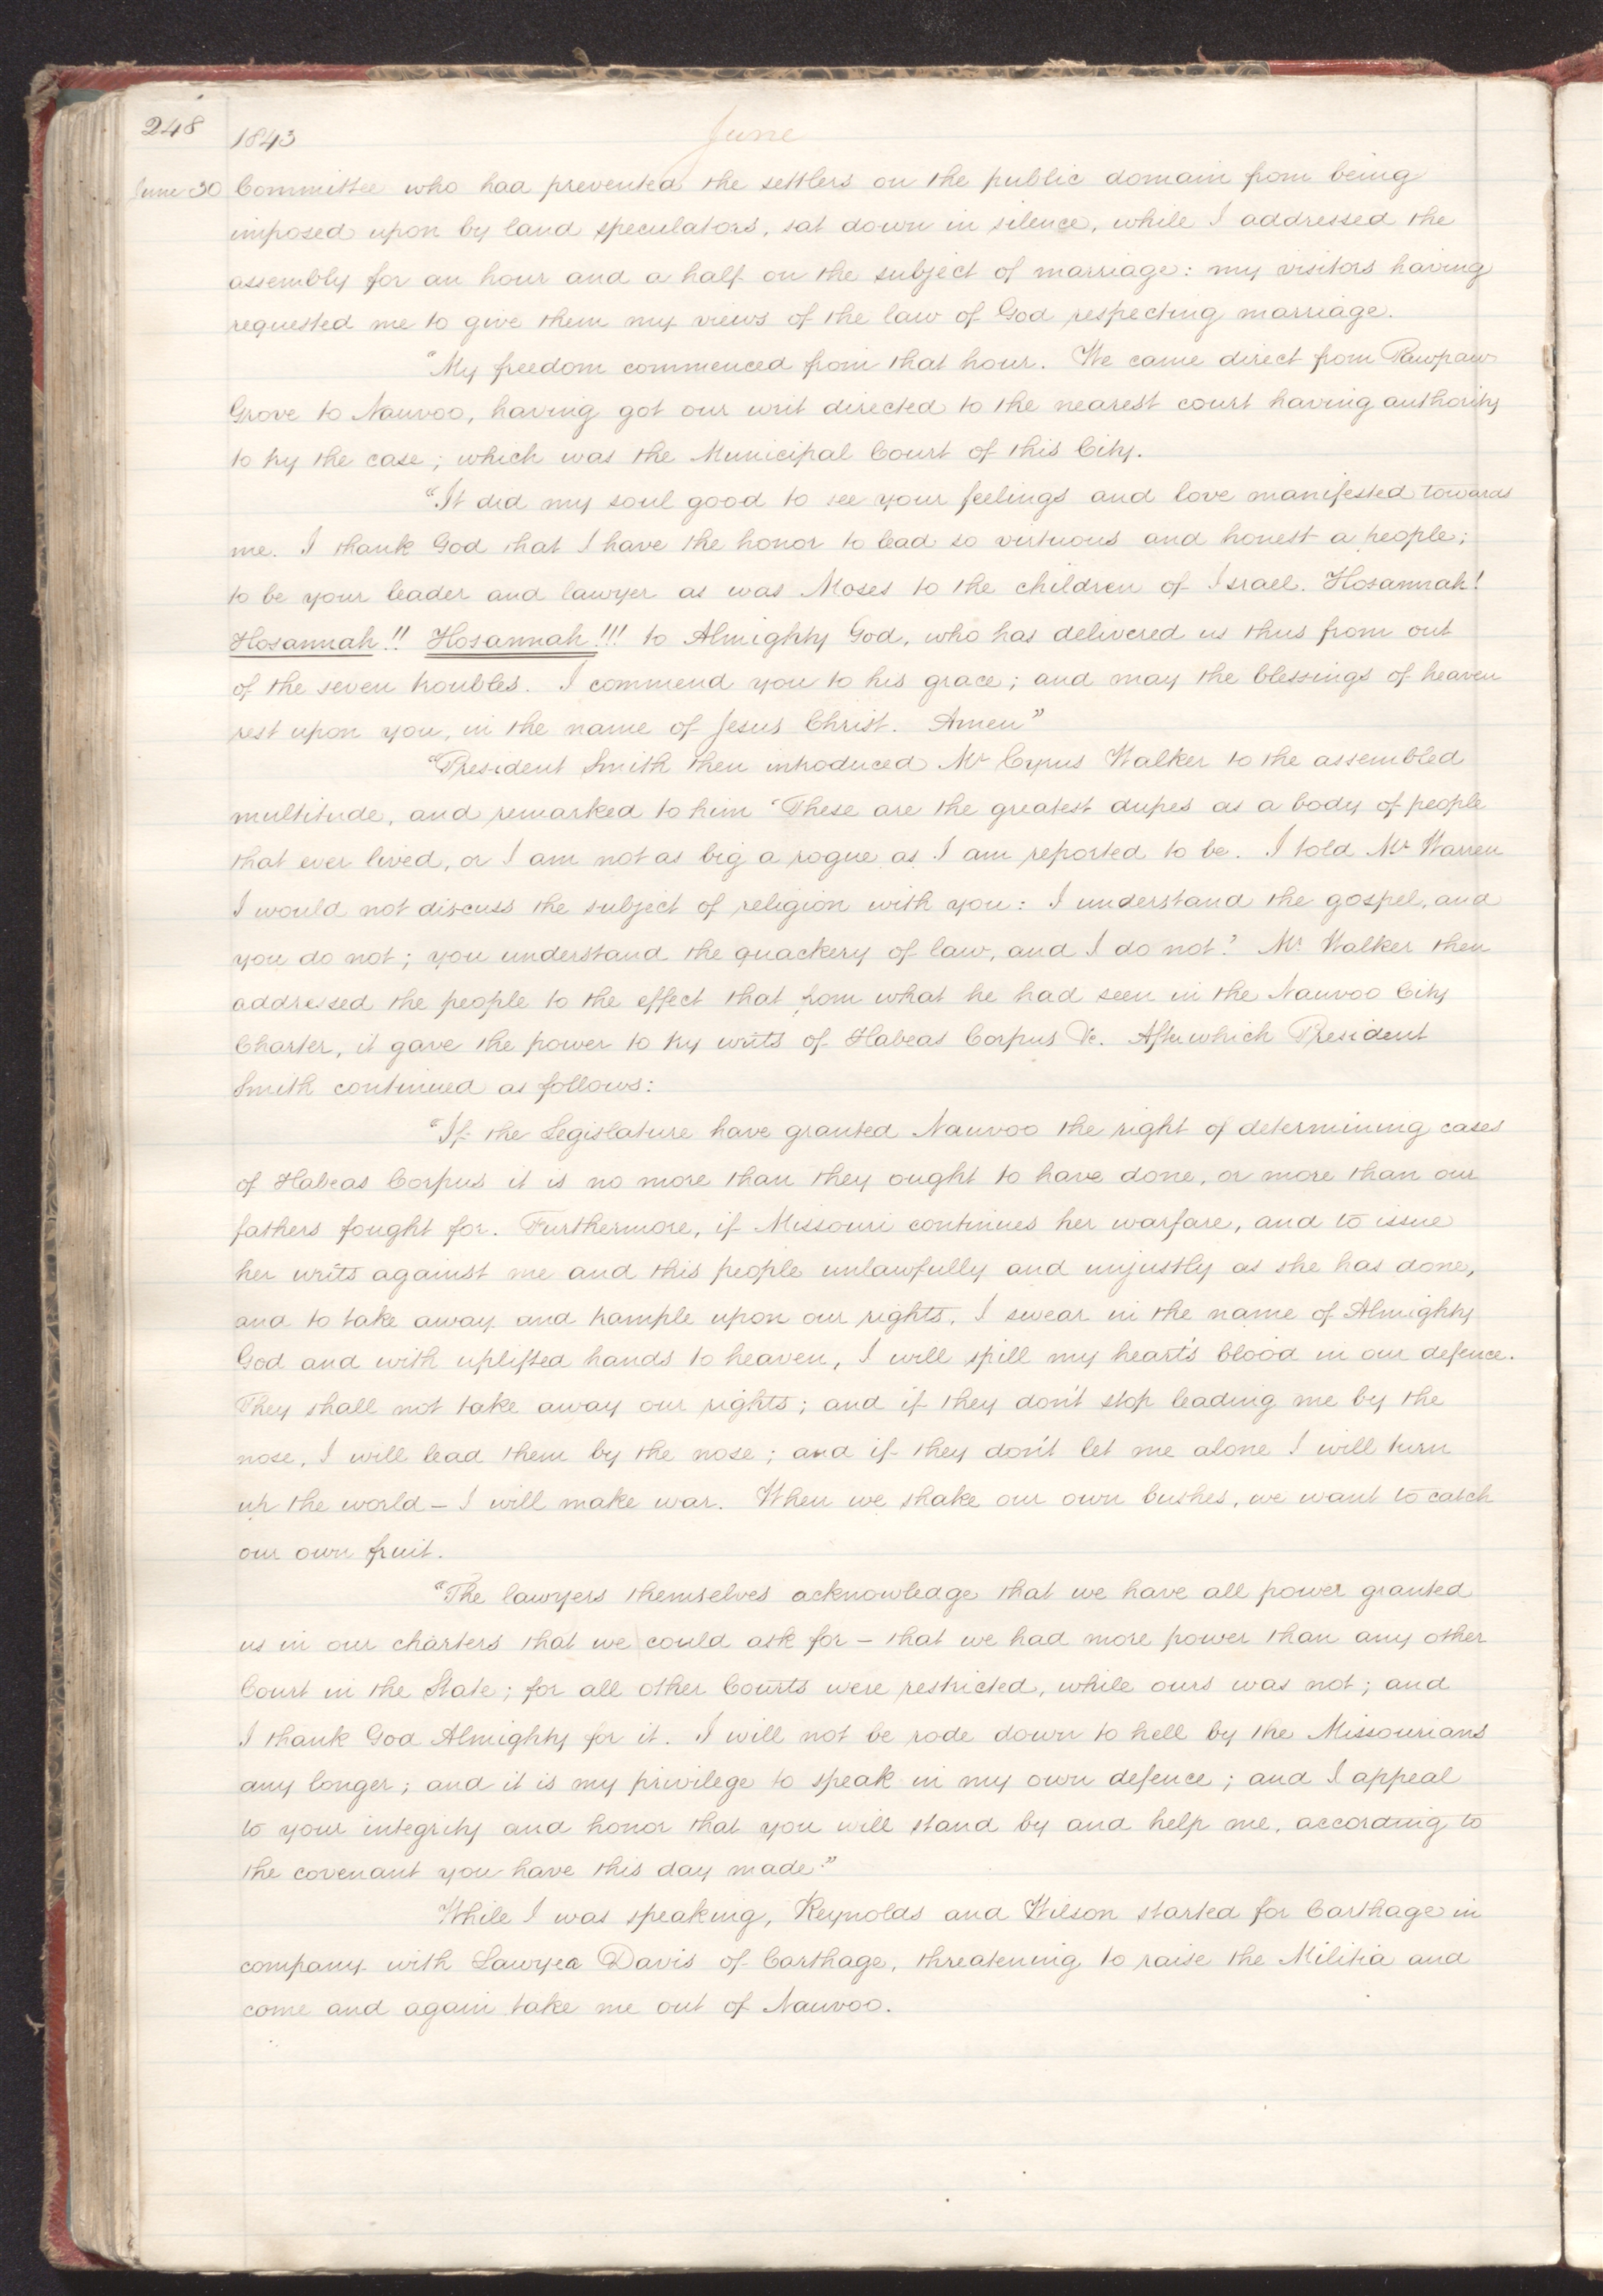 248
1843
June
June 30 Committee who had prevented the settlers on the public domain from being
imposed upon by land speculators, sat down in silence, while I addressed the
assembly for an hour and a half on the subject of marriage: my visitors having
requested me to give them my views of the law of God respecting marriage.
"My freedom commenced from that hour. We came direct from Pawpaw
Grove to Nauvoo, having got our writ directed to the nearest court having authority
to try the case; which was the Municipal Court of this City.
"It did my soul good to see your feelings and love manifested towards
me. I thank God that I have the honor to lead so virtuous and honest a people;
to be your leader and lawyer as was Moses to the children of Israel. Hosannah!
Hosannah!! Hosannah!!! to Almighty God, who has delivered us thus from out
of the seven troubles. I commend you to his grace; and may the blessings of heaven
rest upon you, in the name of Jesus Christ. Amen"
"President Smith then introduced Mr Cyrus Walker to the assembled
multitude, and remarked to him 'These are the greatest dupes as a body of people
that ever lived, or I am not as big a rogue as I am reported to be. I told Mr Warren
I would not discuss the subject of religion with you: I understand the gospel, and
you do not; you understand the quackery of law, and I do not.' Mr Walker then
addressed the people to the effect that from what he had seen in the Nauvoo City
Charter, it gave the power to try writs of Habeas Corpus &c. After which President
Smith continued as follows:
"If the Legislature have granted Nauvoo the right of determining cases
of Habeas Corpus it is no more than they ought to have done, or more than our
fathers fought for. Furthermore, if Missouri continues her warfare, and to issue
her writs against me and this people unlawfully and unjustly as she has done,
and to take away and trample upon our rights, I swear in the name of Almighty
God and with uplifted hands to heaven, I will spill my heart's blood in our defence.
They shall not take away our rights; and if they don't stop leading me by the
nose, I will lead them by the nose; and if they don't let me alone I will turn
up the world – I will make war. When we shake our own bushes, we want to catch
our own fruit.
"The lawyers themselves acknowledge that we have all power granted
us in our charters that we could ask for – that we had more power than any other
Court in the State; for all other Courts were restricted, while ours was not; and
I thank God Almighty for it. I will not be rode down to hell by the Missourians
any longer; and it is my privilege to speak in my own defence; and I appeal
to your integrity and honor that you will stand by and help me, according to
the covenant you have this day made."
While I was speaking, Reynolds and Wilson started for Carthage in
company with Lawyer Davis of Carthage, threatening to raise the Militia and
come and again take me out of Nauvoo.